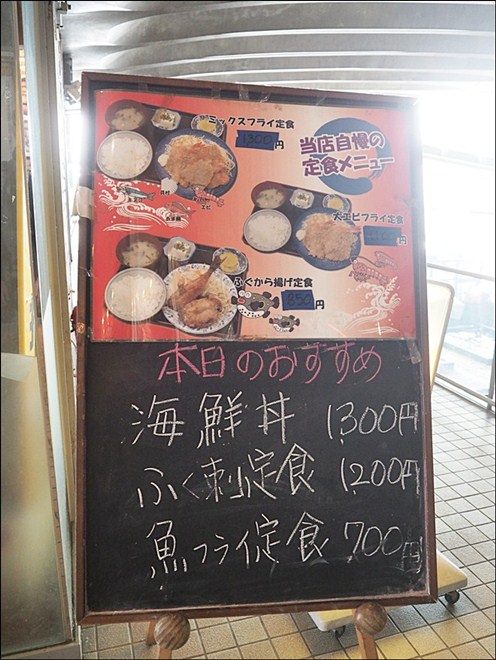 ミックスフライ定食
1300円
当店自慢の
定食メニュー
大エビフライ定食
円
ふぐから揚げ定食
850円
本日のおすすめ
海鮮丼 1300円
ふく刺定食 1200円
魚フライ定食 700円